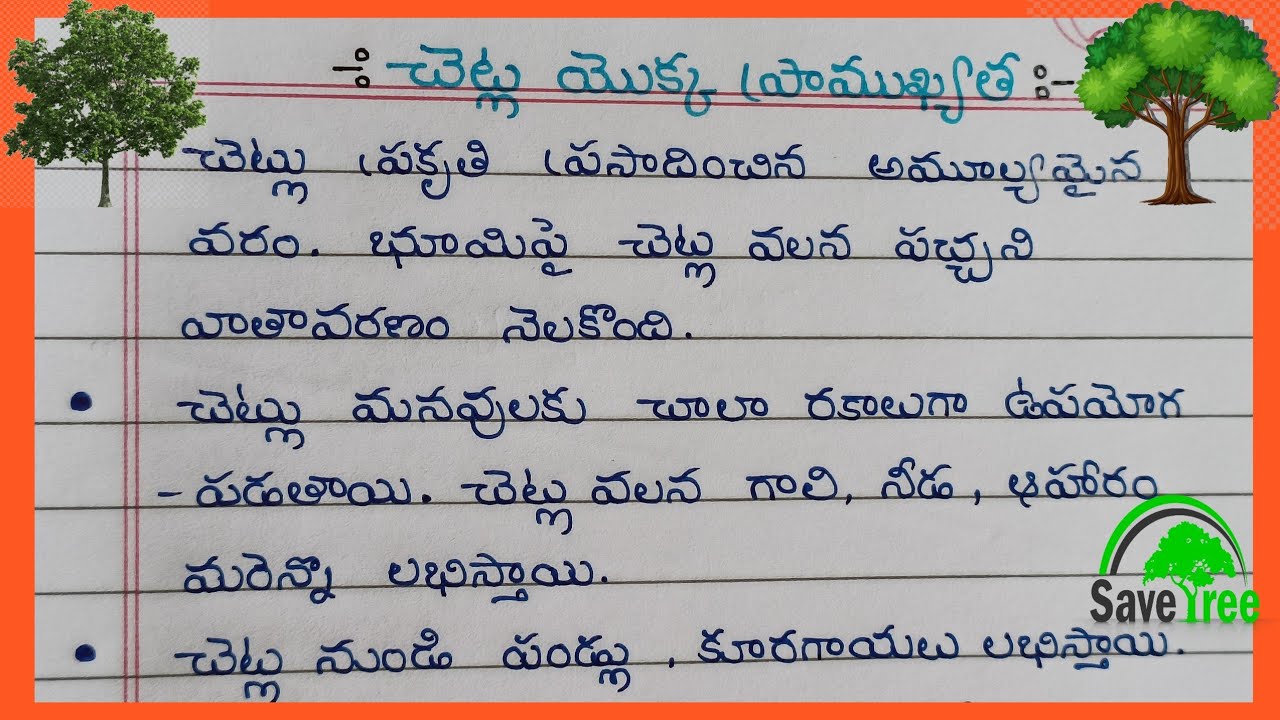 ÷ చెట్లు యొక్క ప్రాముఖ్యత :-
చెట్లు ప్రకృతి ప్రసాదించిన అమూల్యమైన
వరం. భూమిపై చెట్లు వలన పచ్చని
వాతావరణం నెలకొంది.
• చెట్లు మనవులకు చాలా రకాలుగా ఉపయోగ
- పడతాయి. చెట్లు వలన గాలి, నీడ, ఆహారం
మరెన్నొ లభిస్తాయి.
• చెట్లు నుండి పండ్లు, కూరగాయలు లభిస్తాయి.
Save Tree